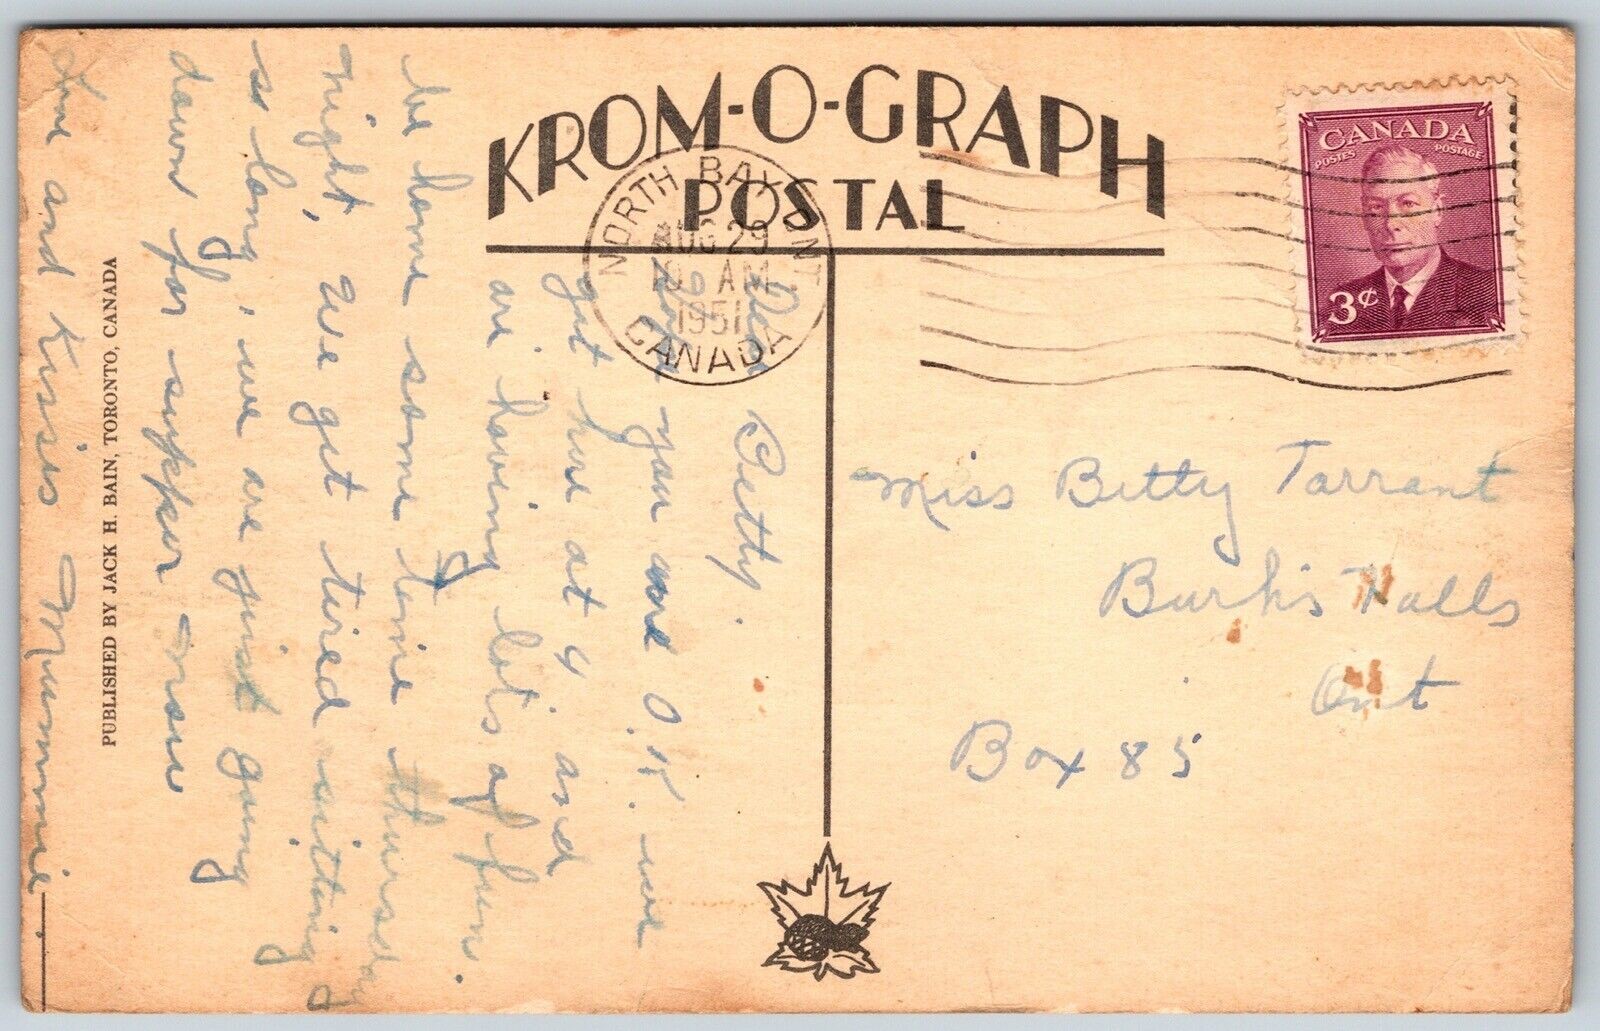 KROM-O-GRAPH
POSTAL
NORTH BAY ONT
AUG 29
10 AM
1951
CANADA
CANADA
POSTES POSTAGE
3¢
Dear Betty.
Hope you are O.K. we
got here at 4 and
are having lots of fun.
be home some time thursday
night, We get tired sitting
so long, we are just going
down for supper now
Love and Kisses Mummie.
Miss Betty Tarrant
Burk's Falls
Ont
Box 85
PUBLISHED BY JACK H. BAIN, TORONTO, CANADA